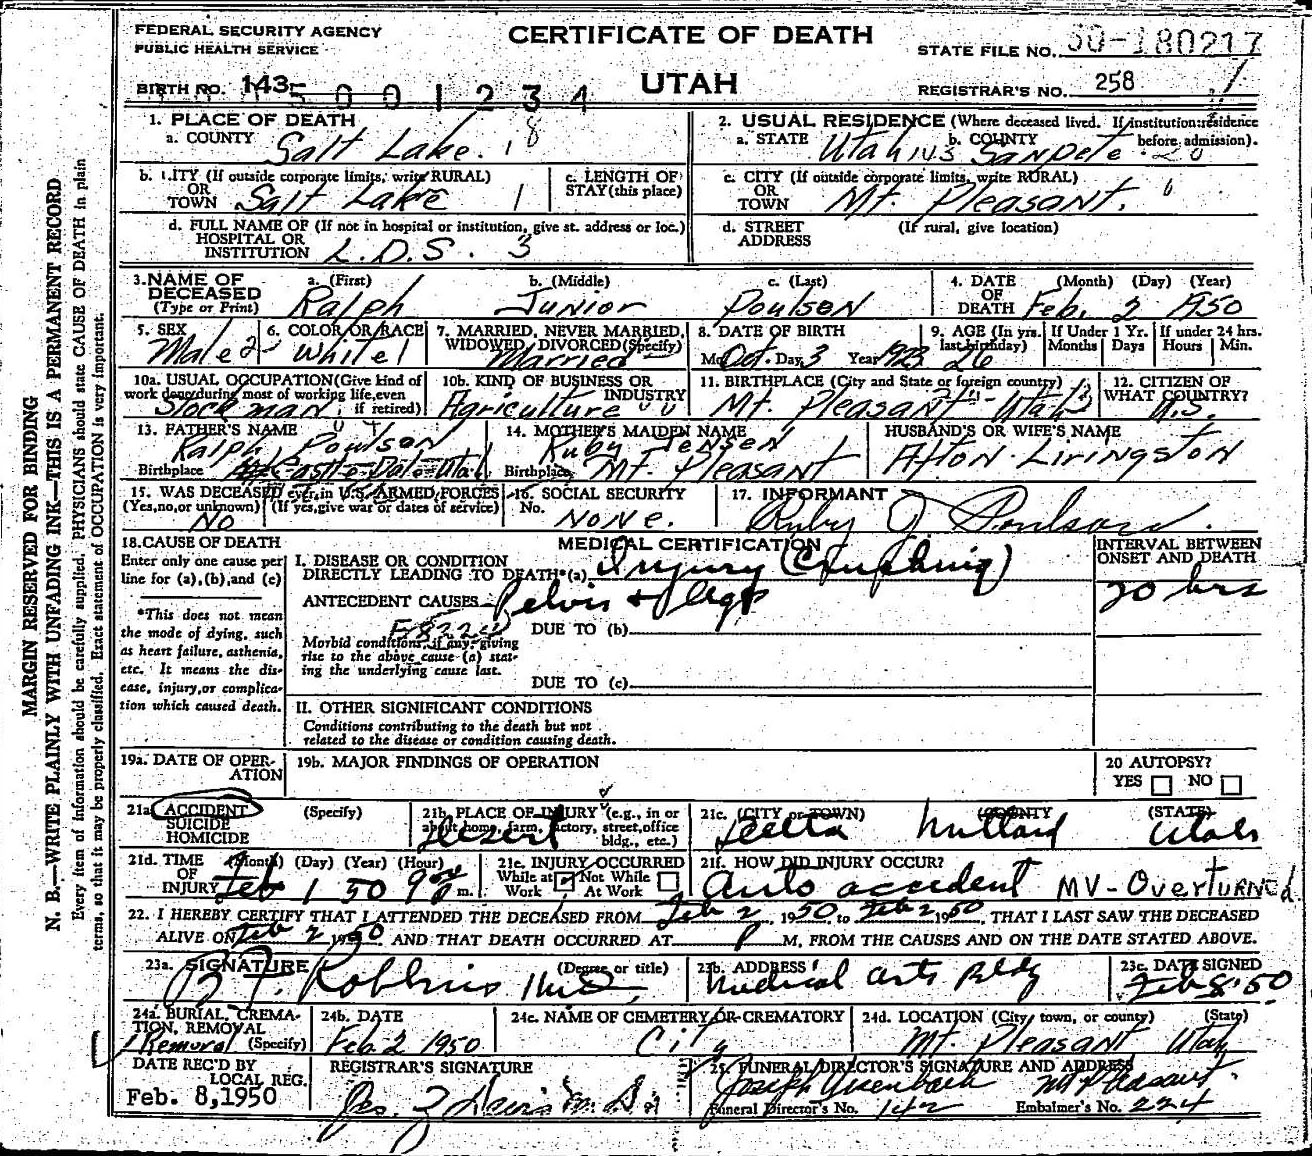 FEDERAL SECURITY AGENCY
PUBLIC HEALTH SERVICE
CERTIFICATE OF DEATH
STATE FILE NO. 50-180217
BIRTH NO. 143 5001234
UTAH
REGISTRAR'S NO. 258
MARGIN RESERVED FOR BINDING
N. B.—WRITE PLAINLY WITH UNFADING INK—THIS IS A PERMANENT RECORD
Every item of information should be carefully supplied. PHYSICIANS should state CAUSE OF DEATH in plain
terms, so that it may be properly classified. Exact statement of OCCUPATION is very important.
1. PLACE OF DEATH
a. COUNTY Salt Lake. 18
2. USUAL RESIDENCE (Where deceased lived. If institution: residence before admission).
a. STATE Utah 143 b. COUNTY Sanpete. 20
b. CITY (If outside corporate limits, write RURAL)
OR TOWN Salt Lake 1
c. LENGTH OF STAY (this place)
c. CITY (If outside corporate limits, write RURAL)
OR TOWN Mt. Pleasant.
d. FULL NAME OF (If not in hospital or institution, give st. address or loc.)
HOSPITAL OR INSTITUTION L.D.S. 3
d. STREET ADDRESS (If rural, give location)
3. NAME OF DECEASED (Type or Print)
a. (First) Ralph
b. (Middle) Junior
c. (Last) Poulson
4. DATE OF DEATH (Month) (Day) (Year) Feb. 2 1950
5. SEX Male 2
6. COLOR OR RACE White 1
7. MARRIED, NEVER MARRIED, WIDOWED, DIVORCED (Specify) Married
8. DATE OF BIRTH Mo. Oct. Day 3 Year 1923
9. AGE (In yrs. last birthday) 26
If Under 1 Yr. Months Days
If under 24 hrs. Hours Min.
10a. USUAL OCCUPATION (Give kind of work done during most of working life, even if retired) Stockman
10b. KIND OF BUSINESS OR INDUSTRY Agriculture
11. BIRTHPLACE (City and State or foreign country) Mt. Pleasant - Utah
12. CITIZEN OF WHAT COUNTRY? U.S.
13. FATHER'S NAME Ralph Poulson
Birthplace Castle Dale Utah
14. MOTHER'S MAIDEN NAME Ruby Jensen
Birthplace Mt. Pleasant
HUSBAND'S OR WIFE'S NAME
Afton Livingston
15. WAS DECEASED ever in U.S. ARMED FORCES
(Yes, no, or unknown) (If yes, give war or dates of service)
No
16. SOCIAL SECURITY No. None.
17. INFORMANT
Ruby J Poulson.
18. CAUSE OF DEATH
Enter only one cause per line for (a), (b), and (c)
*This does not mean the mode of dying, such as heart failure, asthenia, etc. It means the disease, injury, or complication which caused death.
MEDICAL CERTIFICATION
INTERVAL BETWEEN ONSET AND DEATH
I. DISEASE OR CONDITION
DIRECTLY LEADING TO DEATH*(a) Injury (Crushing)
20 hrs
ANTECEDENT CAUSES Pelvis + legs
DUE TO (b)
Morbid conditions, if any, giving rise to the above cause (a) stating the underlying cause last.
DUE TO (c)
II. OTHER SIGNIFICANT CONDITIONS
Conditions contributing to the death but not related to the disease or condition causing death.
19a. DATE OF OPERATION
19b. MAJOR FINDINGS OF OPERATION
20 AUTOPSY?
YES NO
21a ACCIDENT (Specify)
SUICIDE
HOMICIDE
21b. PLACE OF INJURY (e.g., in or about home, farm, factory, street, office bldg., etc.) Desert
21c. (CITY or TOWN) (COUNTY) (STATE)
Delta Millard Utah
21d. TIME OF INJURY (Month) (Day) (Year) (Hour) Feb 1 50 9 m.
21e. INJURY OCCURRED
While at Work Not While At Work
21f. HOW DID INJURY OCCUR?
Auto accident MV-Overturned
22. I HEREBY CERTIFY THAT I ATTENDED THE DECEASED FROM Feb 2, 1950, to Feb 2 1950, THAT I LAST SAW THE DECEASED
ALIVE ON Feb 2 1950 AND THAT DEATH OCCURRED AT P M, FROM THE CAUSES AND ON THE DATE STATED ABOVE.
23a. SIGNATURE (Degree or title)
Robbins M.D.
23b. ADDRESS
Medical Arts Bldg
23c. DATE SIGNED
Feb 8 '50
24a. BURIAL, CREMATION, REMOVAL (Specify) Removal
24b. DATE
Feb. 2 1950
24c. NAME OF CEMETERY OR CREMATORY
City
24d. LOCATION (City, town, or county) (State)
Mt. Pleasant Utah
DATE REC'D BY LOCAL REG.
Feb. 8, 1950
REGISTRAR'S SIGNATURE
25. FUNERAL DIRECTOR'S SIGNATURE AND ADDRESS
Joseph Ursenbach Mt Pleasant.
Funeral Director's No. 142 Embalmer's No. 224